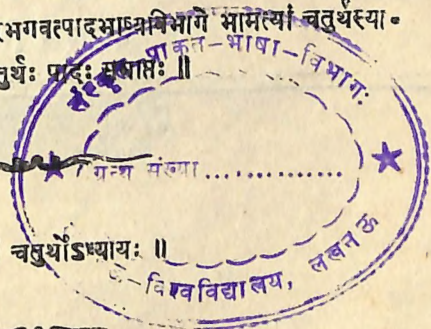 भगवत्पादभाष्यविभागे भामत्यां चतुर्थस्या-
तुर्थः पादः समाप्तः ॥
संस्कृत प्राकृत-भाषा-विभागः
ग्रन्थ संख्या ...............
चतुर्थोऽध्यायः ॥
विश्वविद्यालय, लखनऊ